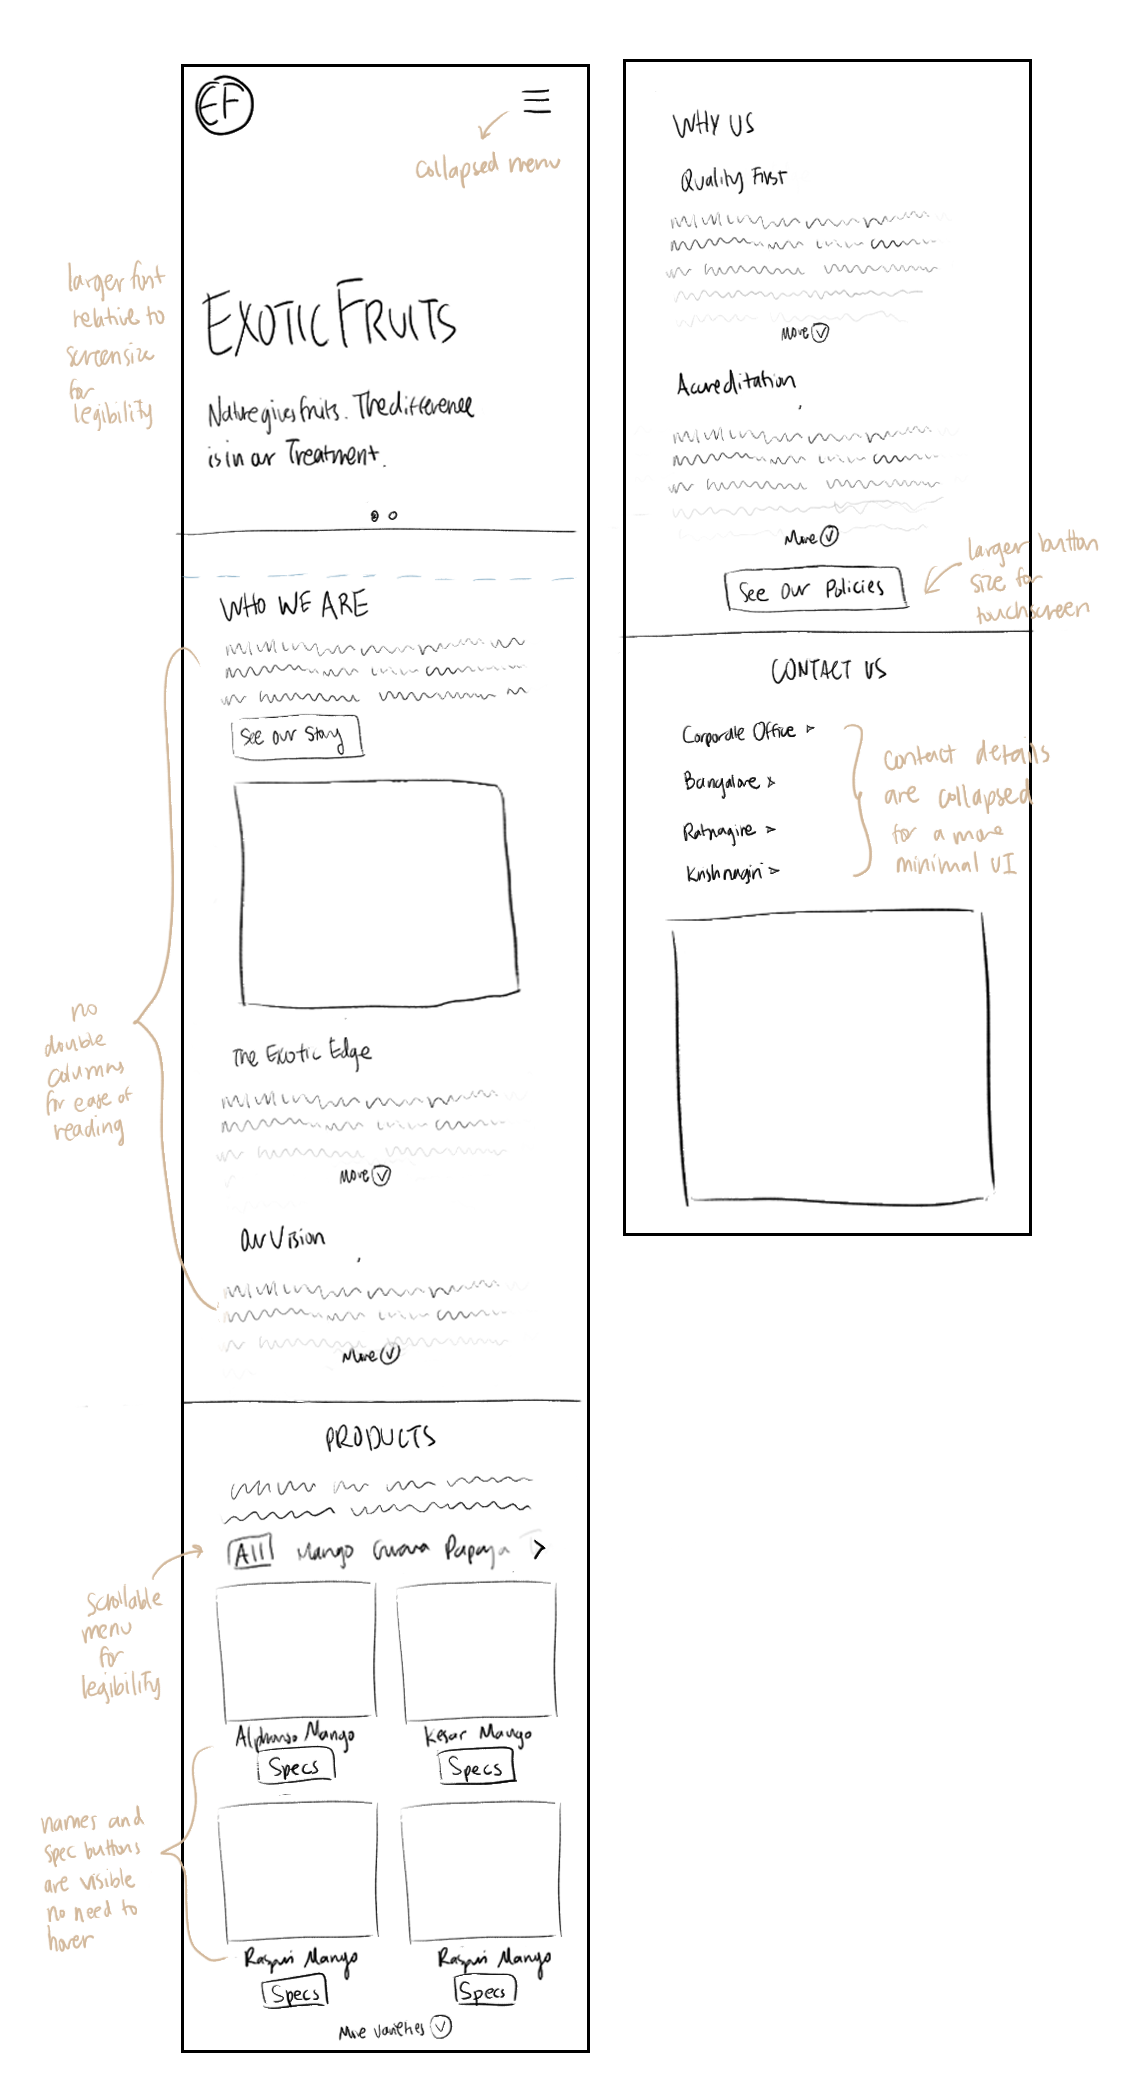 EF
collapsed menu
larger font
relative to
screen size
for
legibility
EXOTIC FRUITS
Nature gives fruits. The difference
is in our Treatment.
WHO WE ARE
See our Story
no
double
columns
for ease of
reading
The Exotic Edge
More
Our Vision
More
PRODUCTS
All Mango Guava Papaya
scrollable
menu
for
legibility
Alphonso Mango
Kesar Mango
Specs
Specs
names and
spec buttons
are visible
no need to
hover
Raspuri Mango
Raspuri Mango
Specs
Specs
More varieties
WHY US
Quality First
More
Accreditation
More
See Our Policies
larger button
size for
touchscreen
CONTACT US
Corporate Office
Bangalore
Ratnagire
Krishnagiri
contact details
are collapsed
for a more
minimal UI